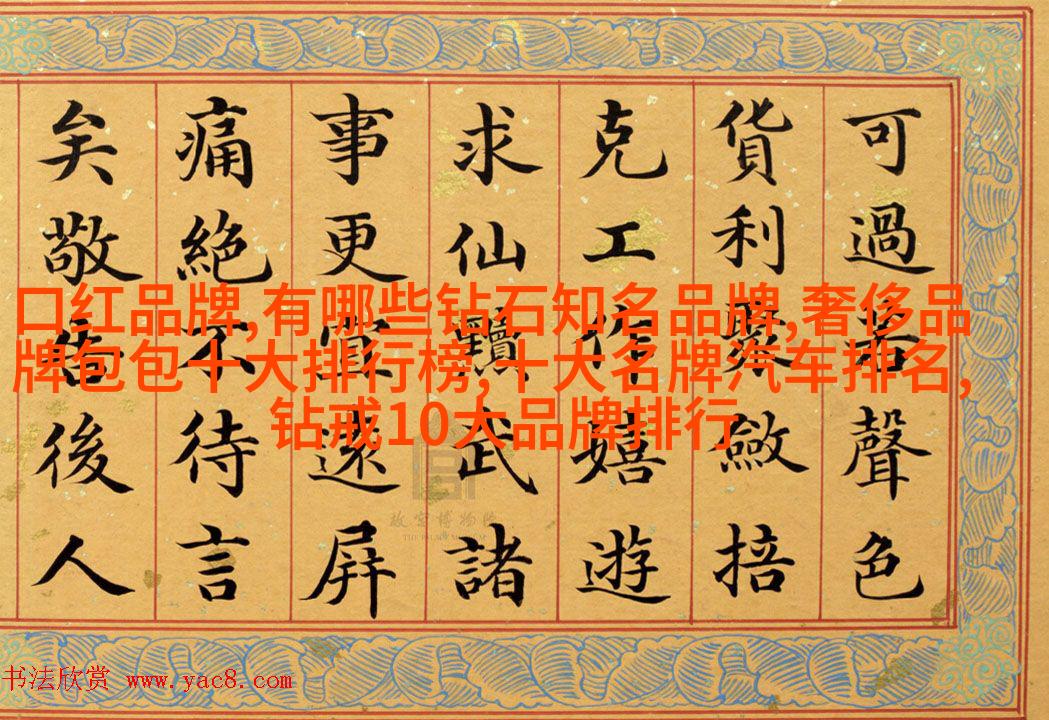 可過若聲色
貨利聚斂掊
克工作嬉遊
求仙黷武諸
事更當遠屏
痛絕不待言
矣敬告後人
口红品牌,有哪些钻石知名品牌,奢侈品
牌包包十大排行榜,十大名牌汽车排名,
钻戒10大品牌排行
故宫博物院
THE PALACE MUSEUM
书法欣赏 www.yac8.com